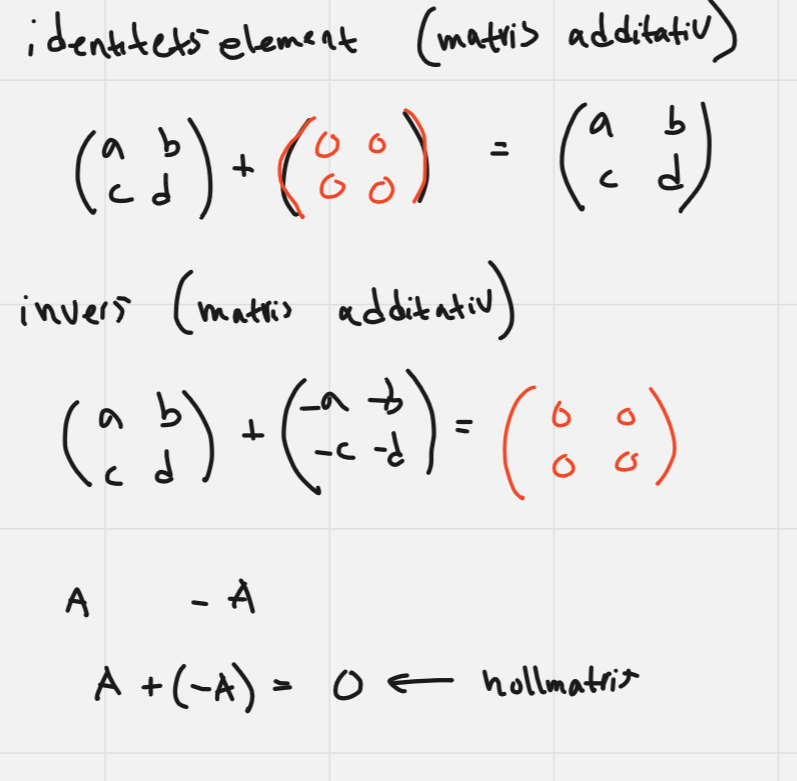 identitets element (matris additativ)
(a b
c d) + (0 0
0 0) = (a b
c d)
invers (matris additativ)
(a b
c d) + (-a -b
-c -d) = (0 0
0 0)
A -A
A + (-A) = 0 ← nollmatris